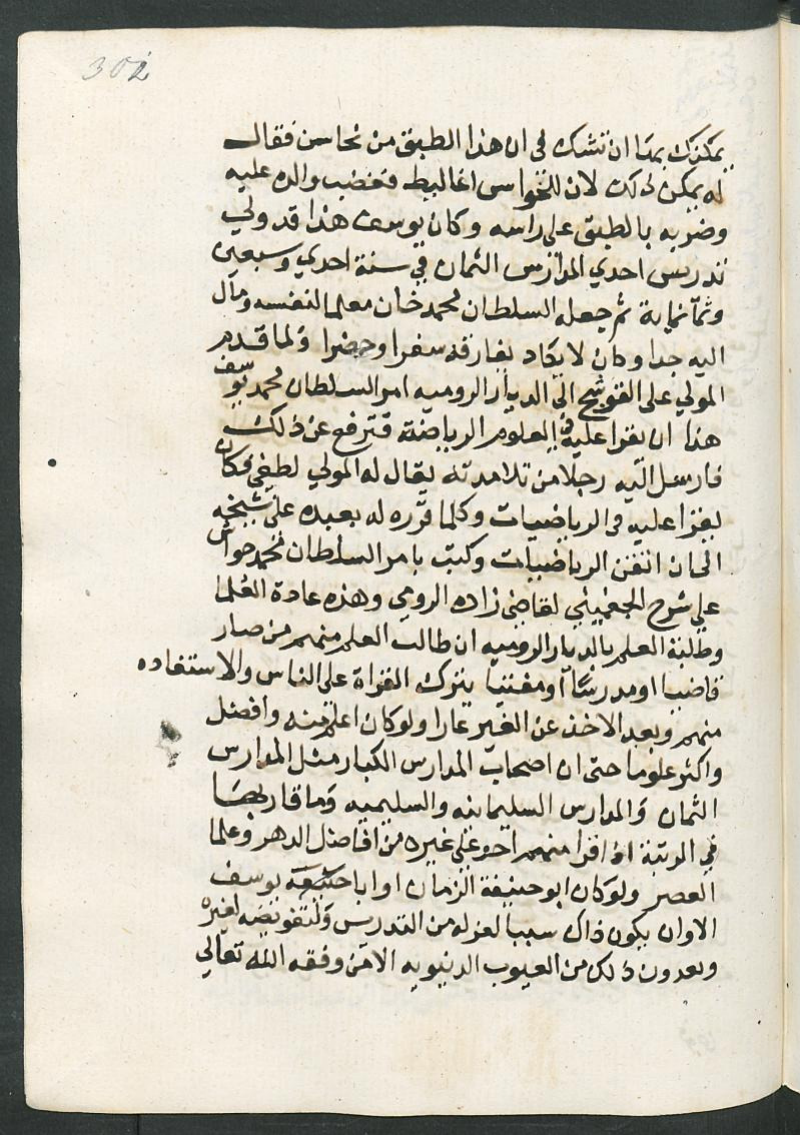 302
يمكنك بهذا ان تشك في ان هذا الطبق من نحاس فقال
له يمكن ذلك لان للحواس اغاليط فغضب والده عليه
وضربه بالطبق على راسه وكان يوسف هذا قد ولي
تدريس احدي المدارس الثمان في سنة احدي وسبعين
وثمانماية ثم جعله السلطان محمد خان معلما لنفسه ومال
اليه جدا وكان لا يكاد يفارقه سفرا وحضرا ولما قدم
المولي على القوشجي الى الديار الروميه امر السلطان محمد يوسف
هذا ان يقرا عليه في العلوم الرياضية فترفع عن ذلك
فارسل اليه رجلا من تلامدته يقال له المولي لطفي فكان
يقرا عليه في الرياضيات وكلما قرره له يعيده على شيخه
الى ان اتقن الرياضيات وكتب بامر السلطان محمد حواش
علي شرح الجغميني لقاضي زاده الرومي وهذه عادة العلما
وطلبة العلم بالديار الروميه ان طالب العلم منهم من صار
قاضيا او مدرسا او مفتيا يترك القراة على الناس والاستفاده
منهم ويعد الاخذ عن الغير عارا ولو كان اعلم منه وافضل
واكثر علوما حتى ان اصحاب المدارس الكبار مثل المدارس
الثمان والمدارس السليمانيه والسليميه وما قاربها
في الرتبة اذا قرا منهم احد على غيره من افاضل الدهر وعلما
العصر ولو كان ابو حنيفة الزمان او ابا يوسف
الاوان يكون ذاك سببا لعزله من التدريس ولتفويضه لغيره
ويعدون ذلك من العيوب الدنيويه الا من وفقه الله تعالي